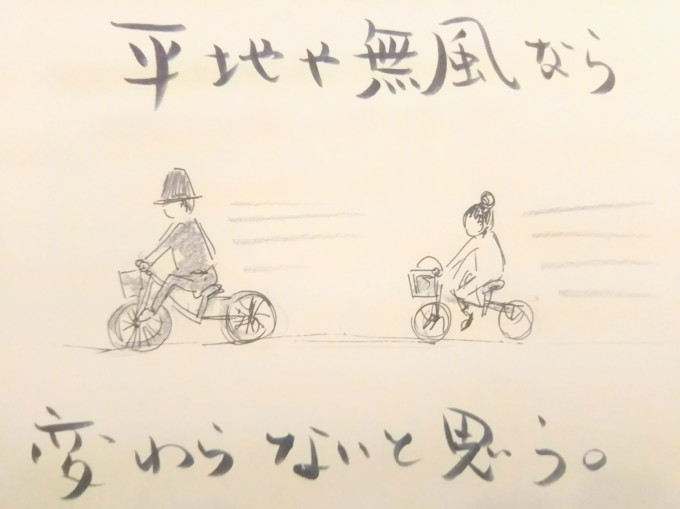 平地や無風なら
変わらないと思う。